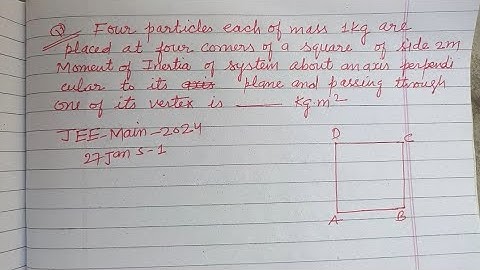 Q Four particles each of mass 1kg are
placed at four corners of a square of side 2m
Moment of Inertia of system about an axis perpendi
cular to its axis plane and passing through
one of its vertex is ____ Kg·m²
JEE-Main-2024
27 Jan S-1
D C
A B